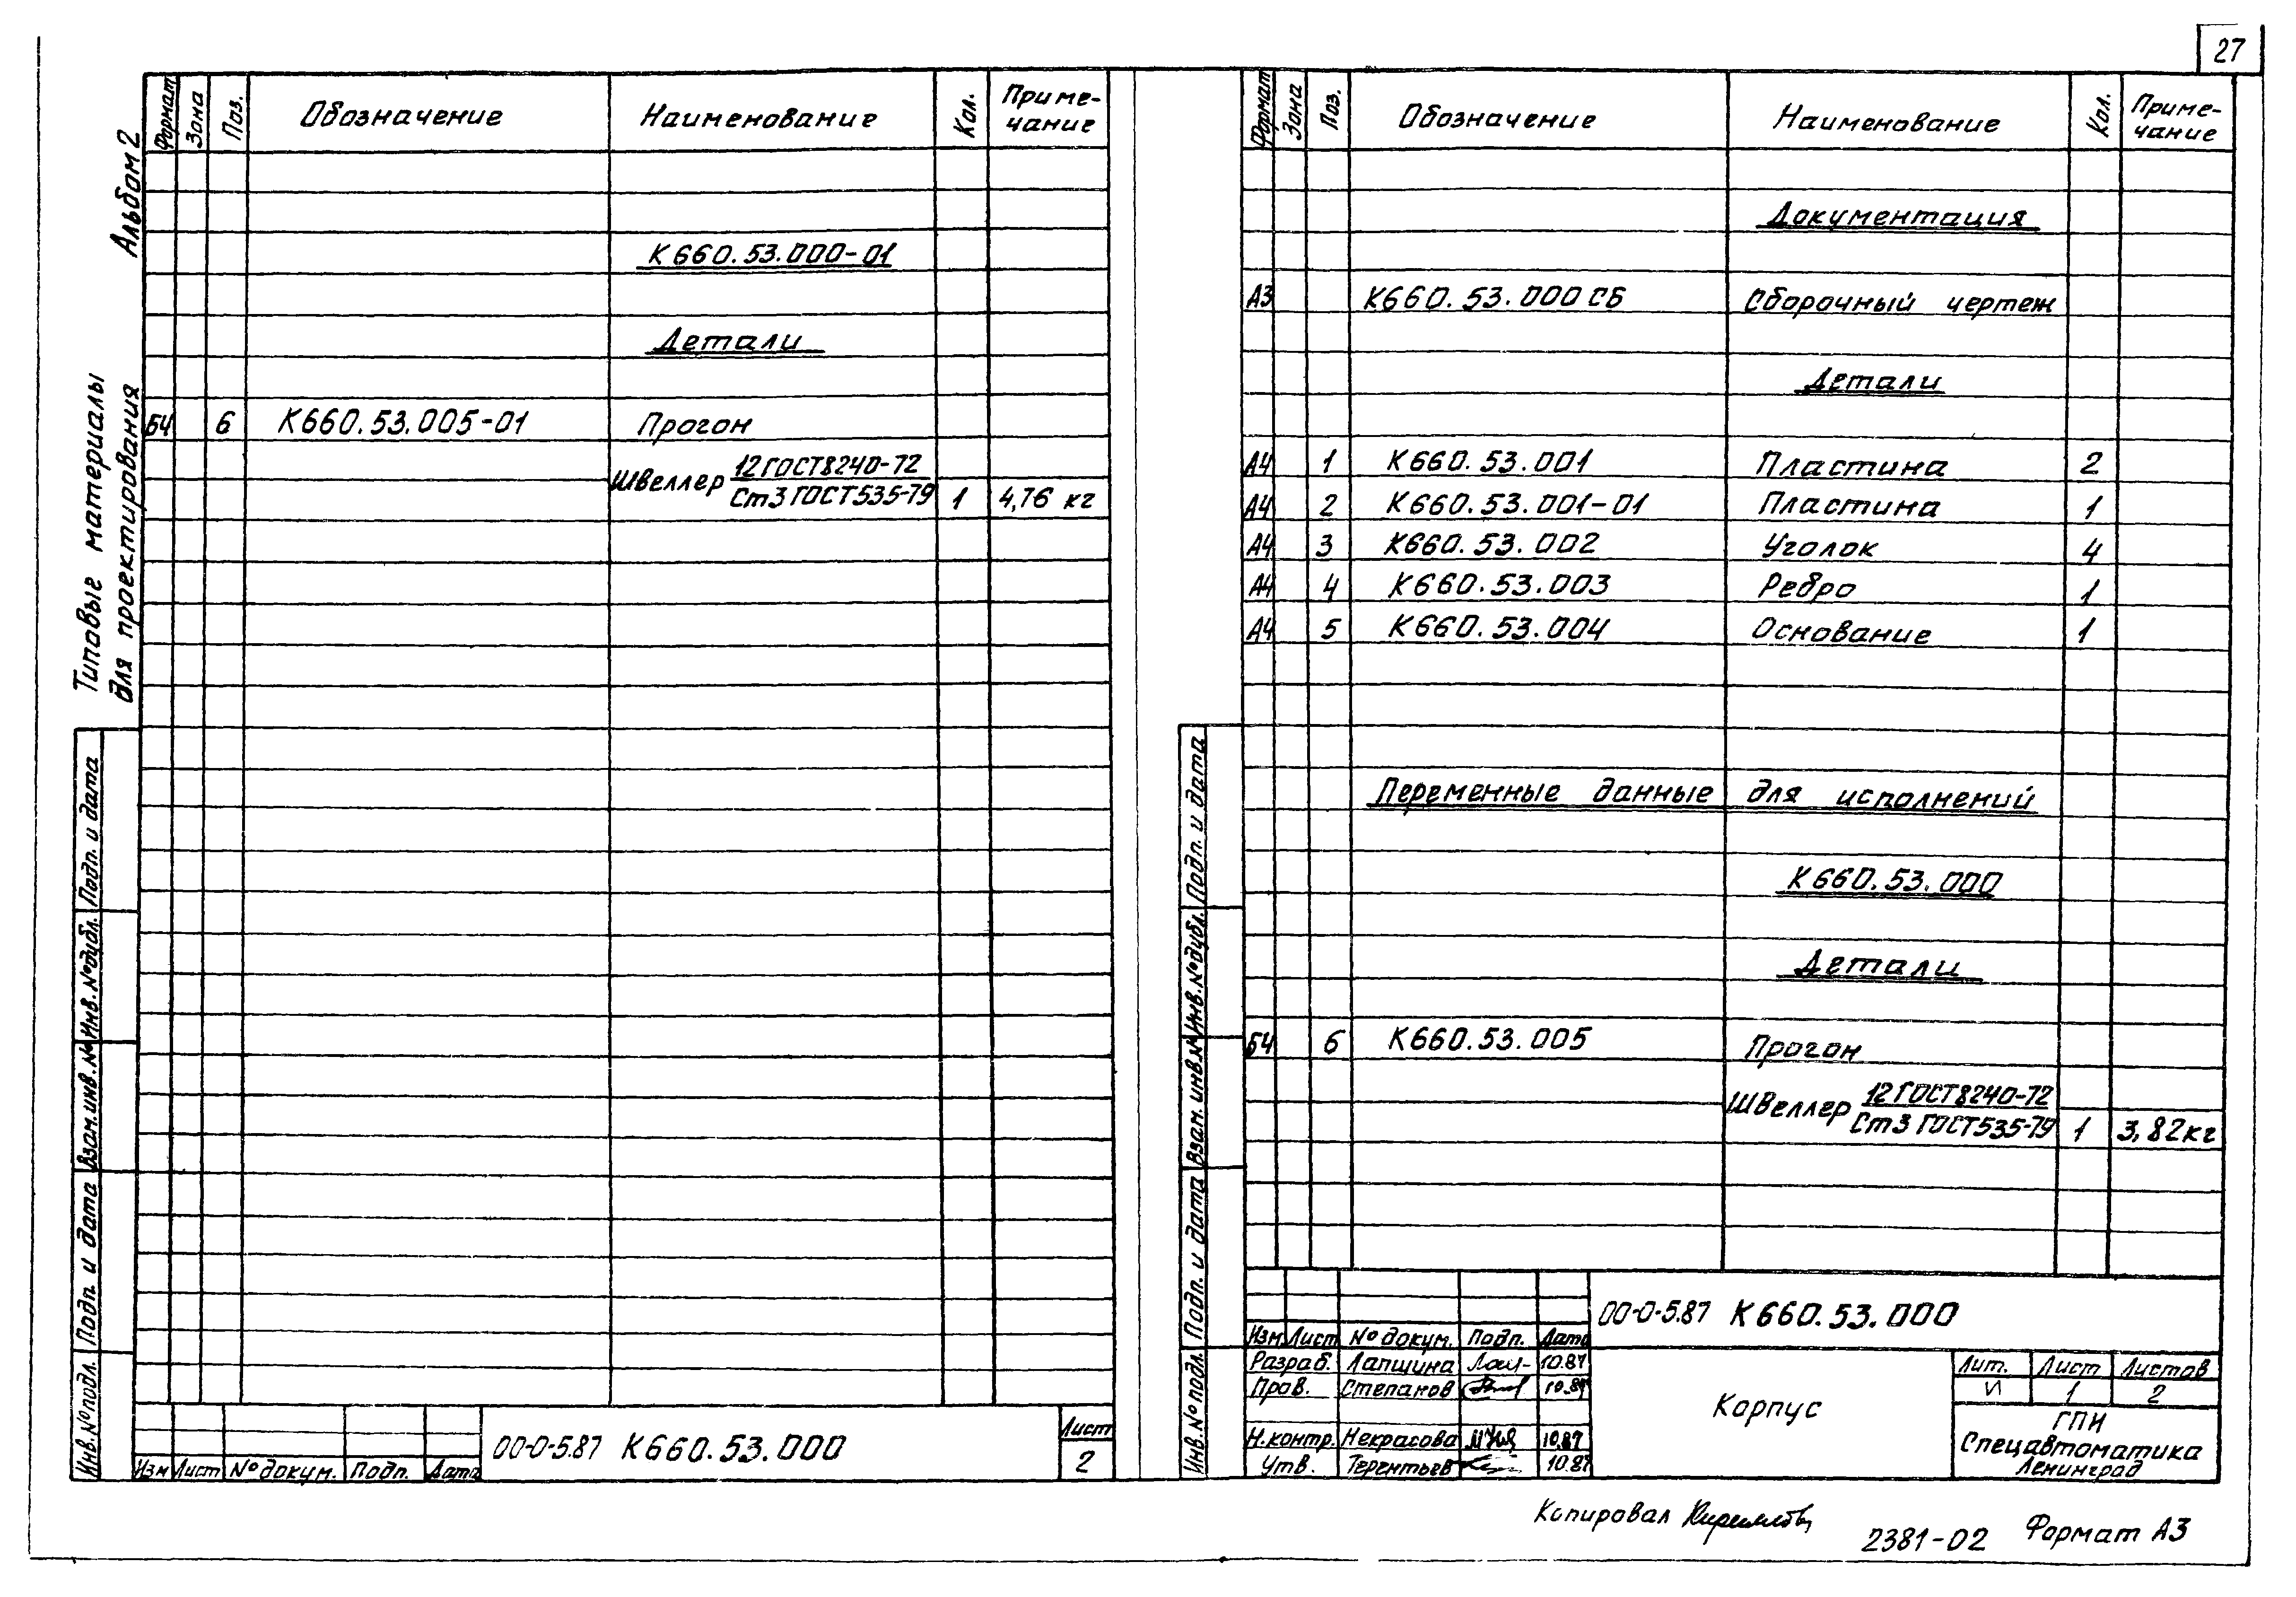 27
Альбом 2
Типовые материалы
для проектирования
Формат Зона Поз. Обозначение Наименование Кол. Приме-
чание
К660.53.000-01
Детали
Б4 6 К660.53.005-01 Прогон
Швеллер 12 ГОСТ 8240-72
Ст3 ГОСТ 535-79 1 4,76 кг
Инв.№ подл. Подп. и дата Взам.инв.№ Инв.№ дубл. Подп. и дата
Изм Лист № докум. Подп. Дата
00-0-5.87 К660.53.000
Лист
2
Формат Зона Поз. Обозначение Наименование Кол. Приме-
чание
Документация
А3 К660.53.000 СБ Сборочный чертеж
Детали
А4 1 К660.53.001 Пластина 2
А4 2 К660.53.001-01 Пластина 1
А4 3 К660.53.002 Уголок 4
А4 4 К660.53.003 Ребро 1
А4 5 К660.53.004 Основание 1
Переменные данные для исполнений
К660.53.000
Детали
Б4 6 К660.53.005 Прогон
Швеллер 12 ГОСТ 8240-72
Ст3 ГОСТ 535-79 1 3,82 кг
Инв.№ подл. Подп. и дата Взам. инв.№ Инв.№ дубл. Подп. и дата
00-0-5.87 К660.53.000
Изм Лист № докум. Подп. Дата
Разраб. Лапшина 10.87
Пров. Степанов 10.87
Н.контр. Некрасова 10.87
Утв. Терентьев 10.87
Корпус
Лит. Лист Листов
И 1 2
ГПИ
Спецавтоматика
Ленинград
Копировал
2381-02 Формат А3